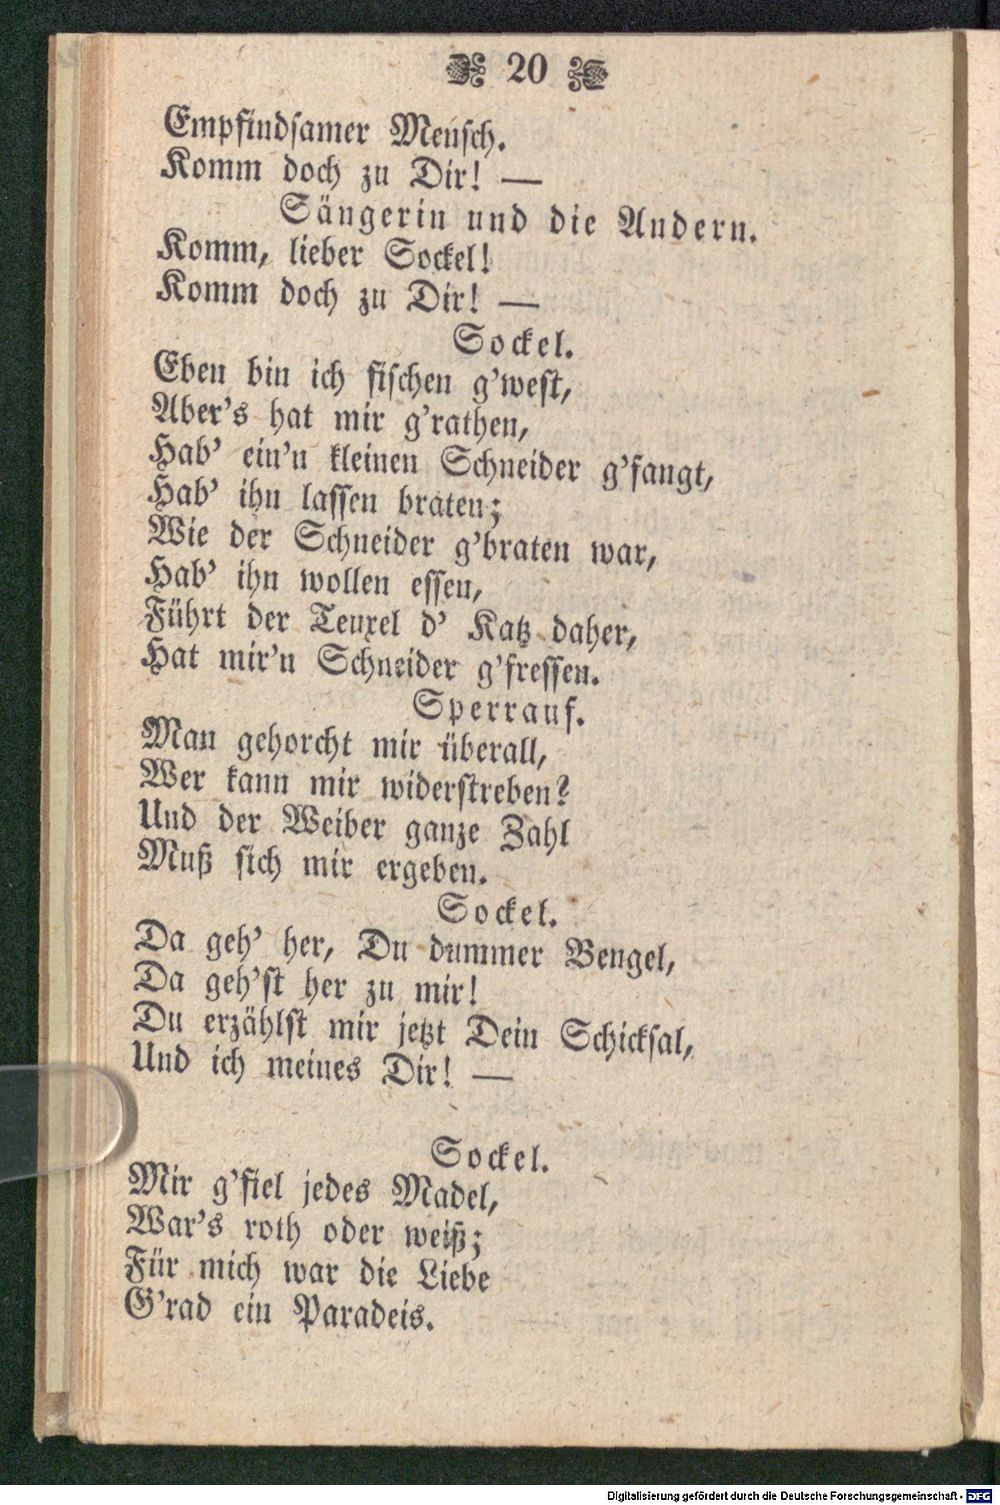 20
Empfindsamer Mensch.
Komm doch zu Dir! —
Sängerin und die Andern.
Komm, lieber Sockel!
Komm doch zu Dir! —
Sockel.
Eben bin ich fischen g'west,
Aber's hat mir g'rathen,
Hab' ein'n kleinen Schneider g'fangt,
Hab' ihn lassen braten;
Wie der Schneider g'braten war,
Hab' ihn wollen essen,
Führt der Teuxel d' Katz daher,
Hat mir'n Schneider g'fressen.
Sperrauf.
Man gehorcht mir überall,
Wer kann mir widerstreben?
Und der Weiber ganze Zahl
Muß sich mir ergeben.
Sockel.
Da geh' her, Du dummer Bengel,
Da geh'st her zu mir!
Du erzählst mir jetzt Dein Schicksal,
Und ich meines Dir! —
Sockel.
Mir g'fiel jedes Madel,
War's roth oder weiß;
Für mich war die Liebe
G'rad ein Paradeis.
Digitalisierung gefördert durch die Deutsche Forschungsgemeinschaft - DFG